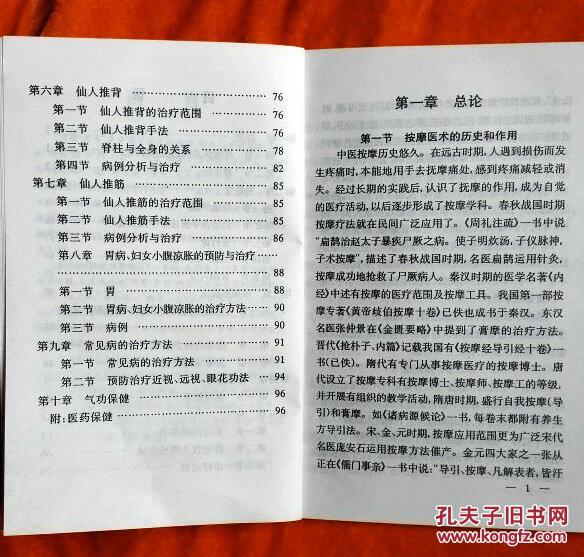 第六章 仙人推背 …………………… 76
第一节 仙人推背的治疗范围 …………… 76
第二节 仙人推背手法 …………………… 76
第三节 脊柱与全身的关系 ……………… 78
第四节 病例分析与治疗 ………………… 82
第七章 仙人推筋 …………………… 85
第一节 仙人推筋的治疗范围 …………… 85
第二节 仙人推筋手法 …………………… 85
第三节 病例分析与治疗 ………………… 86
第八章 胃病、妇女小腹凉胀的预防与治疗 ……
…………………… 88
第一节 胃 …………………… 88
第二节 胃病、妇女小腹凉胀的治疗方法 …… 90
第三节 病例 …………………… 90
第九章 常见病的治疗方法 …………… 91
第一节 常见病的治疗方法 …………… 91
第二节 预防治疗近视、远视、眼花功法 …… 94
第十章 气功保健 …………………… 96
附:医药保健 …………………… 96
第一章 总论
第一节 按摩医术的历史和作用
中医按摩历史悠久。在远古时期,人遇到损伤而发
生疼痛时,本能地用手去抚摩痛处,感到疼痛减轻或消
失。经过长期的实践后,认识了抚摩的作用,成为自觉
的医疗活动,以后逐步形成了按摩学科。春秋战国时期
按摩疗法就在民间广泛应用了。《周礼注疏》一书中说
“扁鹊治赵太子暴疾尸厥之病。使子明炊汤,子仪脉神,
子术按摩”,描述了春秋战国时期,名医扁鹊运用针灸,
按摩成功地抢救了尸厥病人。秦汉时期的医学名著《内
经》中述有按摩的医疗范围及按摩工具。我国第一部按
摩专著《黄帝歧伯按摩十卷》已佚也成书于秦汉。东汉
名医张仲景在《金匮要略》中提到了膏摩的治疗方法。
晋代《抢朴子、内篇》记载我国有《按摩经导引经十卷》一
书(已佚)。隋代有专门从事按摩医疗的按摩博士。唐
代设立了按摩专科有按摩博士、按摩师、按摩工的等级,
并开展有组织的教学活动,隋唐时期,盛行自我按摩(导
引)和膏摩。如《诸病源候论》一书,每卷末都附有养生
方导引法。宋、金、元时期,按摩应用范围更为广泛宋代
名医庞安石运用按摩方法催产。金元四大家之一张从
正在《儒门事亲》一书中说:“导引、按摩、凡解表者,皆汗
— 1 —
孔夫子旧书网